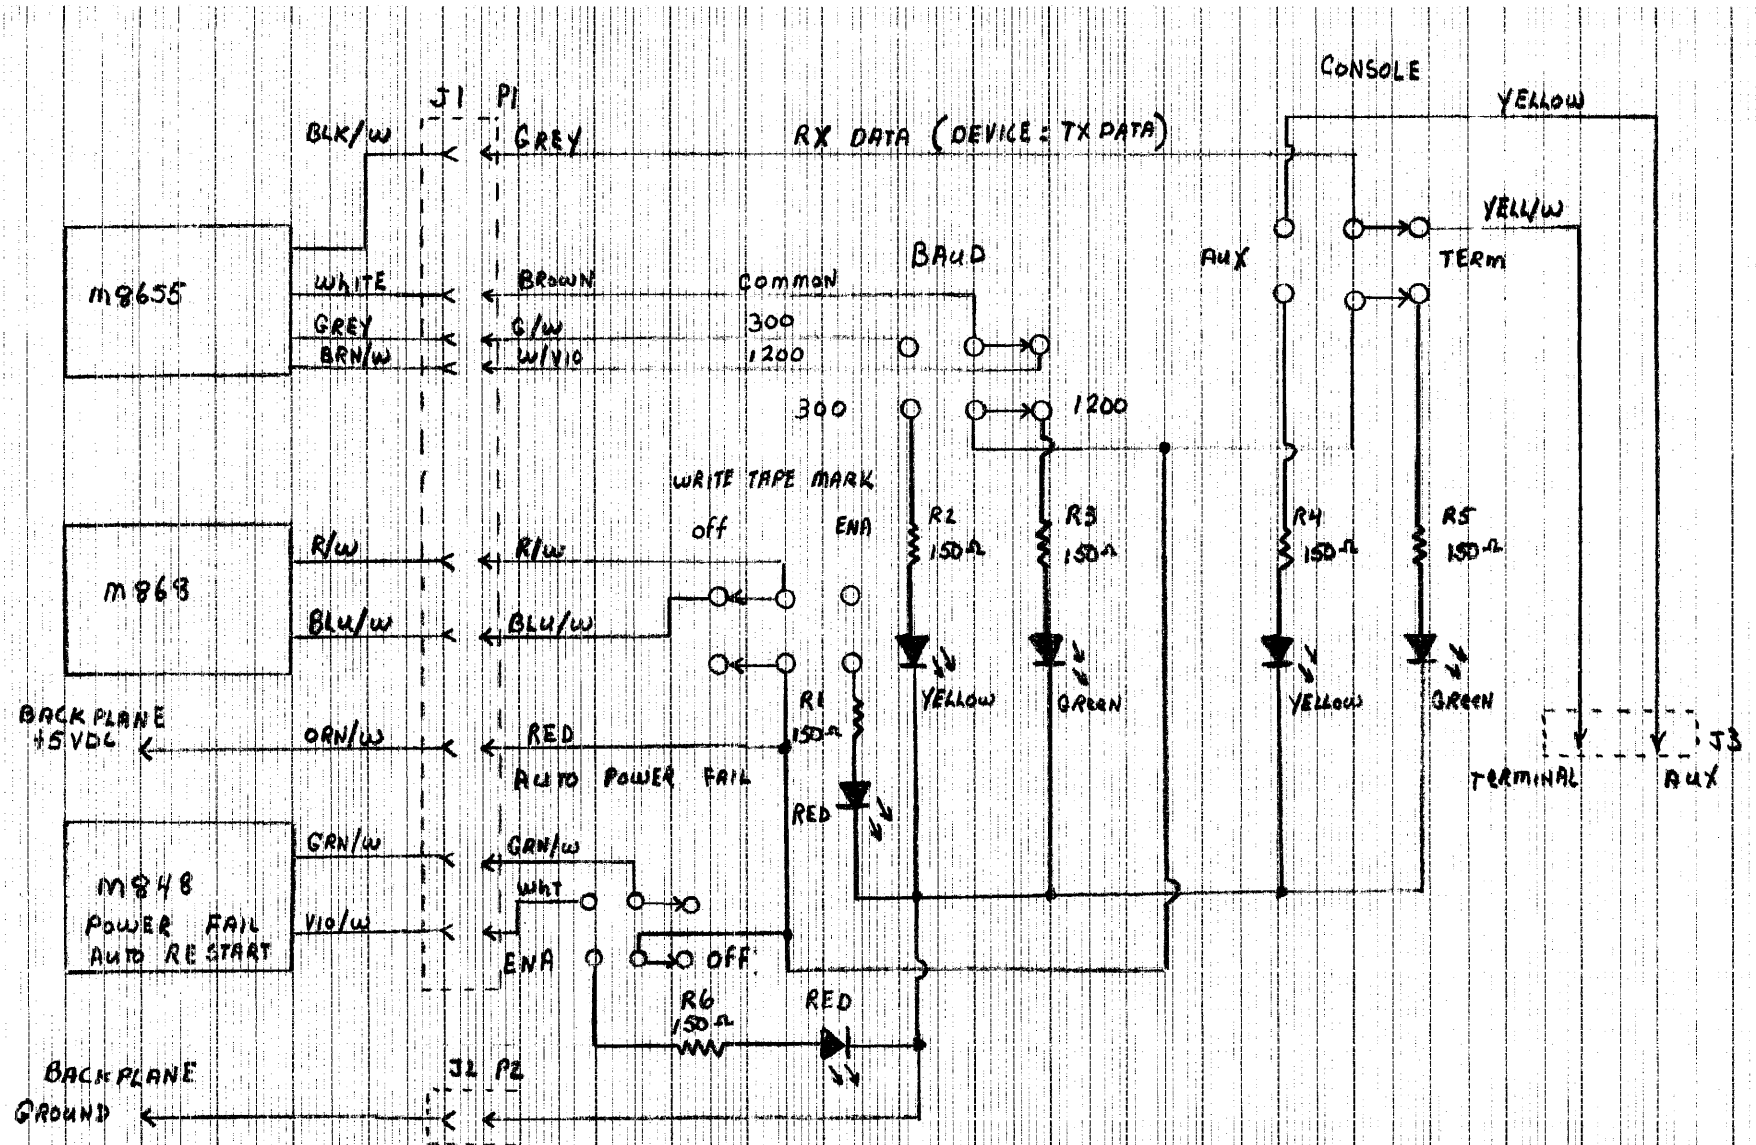 CONSOLE
YELLOW
J1 P1
BLK/W
GREY
RX DATA (DEVICE = TX DATA)
YELL/W
BAUD
AUX
TERM
M8655
WHITE
BROWN
COMMON
GREY
G/W
300
BRN/W
W/VIO
1200
300
1200
WRITE TAPE MARK
off
ENA
R2
150Ω
R3
150Ω
R4
150Ω
R5
150Ω
M868
R/W
R/W
BLU/W
BLU/W
YELLOW
GREEN
YELLOW
GREEN
R1
150Ω
BACKPLANE
+5 VDC
ORN/W
RED
AUTO POWER FAIL
RED
J3
TERMINAL
AUX
M848
POWER FAIL
AUTO RESTART
GRN/W
GRN/W
WHT
VIO/W
ENA
OFF
R6
150Ω
RED
J2 P2
BACKPLANE
GROUND